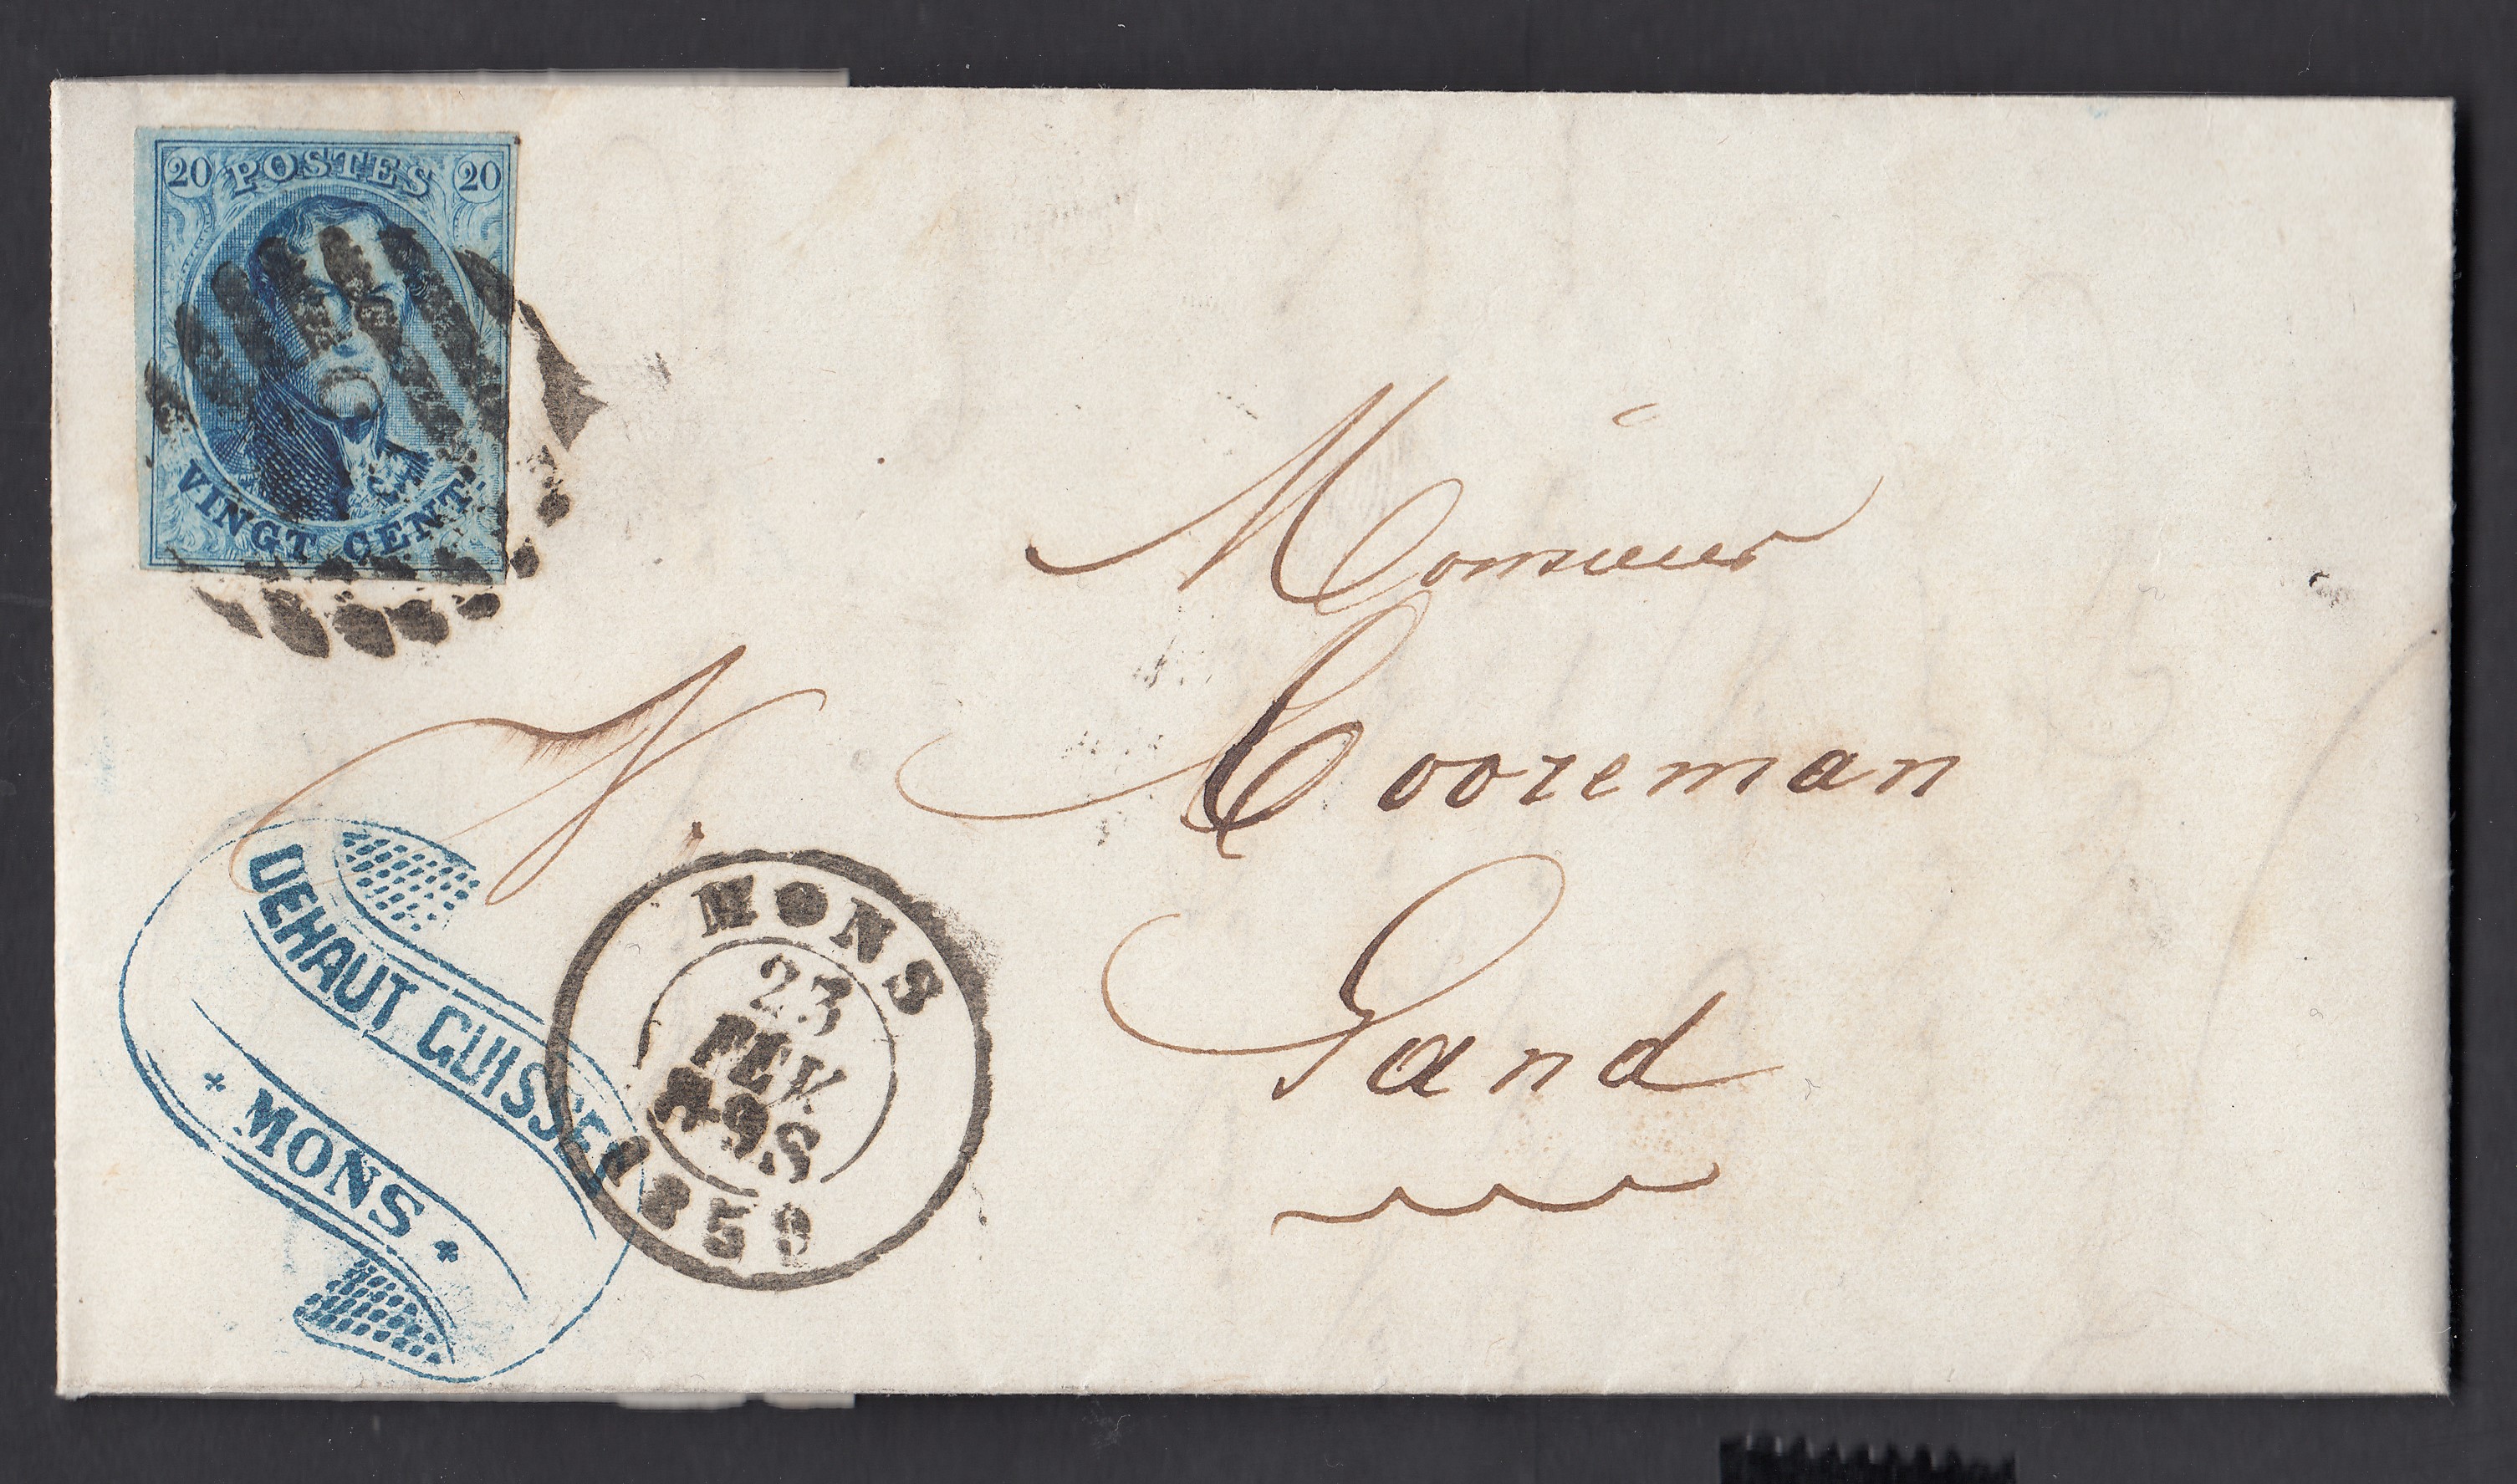 20 POSTES 20
VINGT CENT.
Monsieur
V. Cooreman
Gand
DEHAUT GUISSEZ
* MONS *
MONS
23
FEV
9S
1859